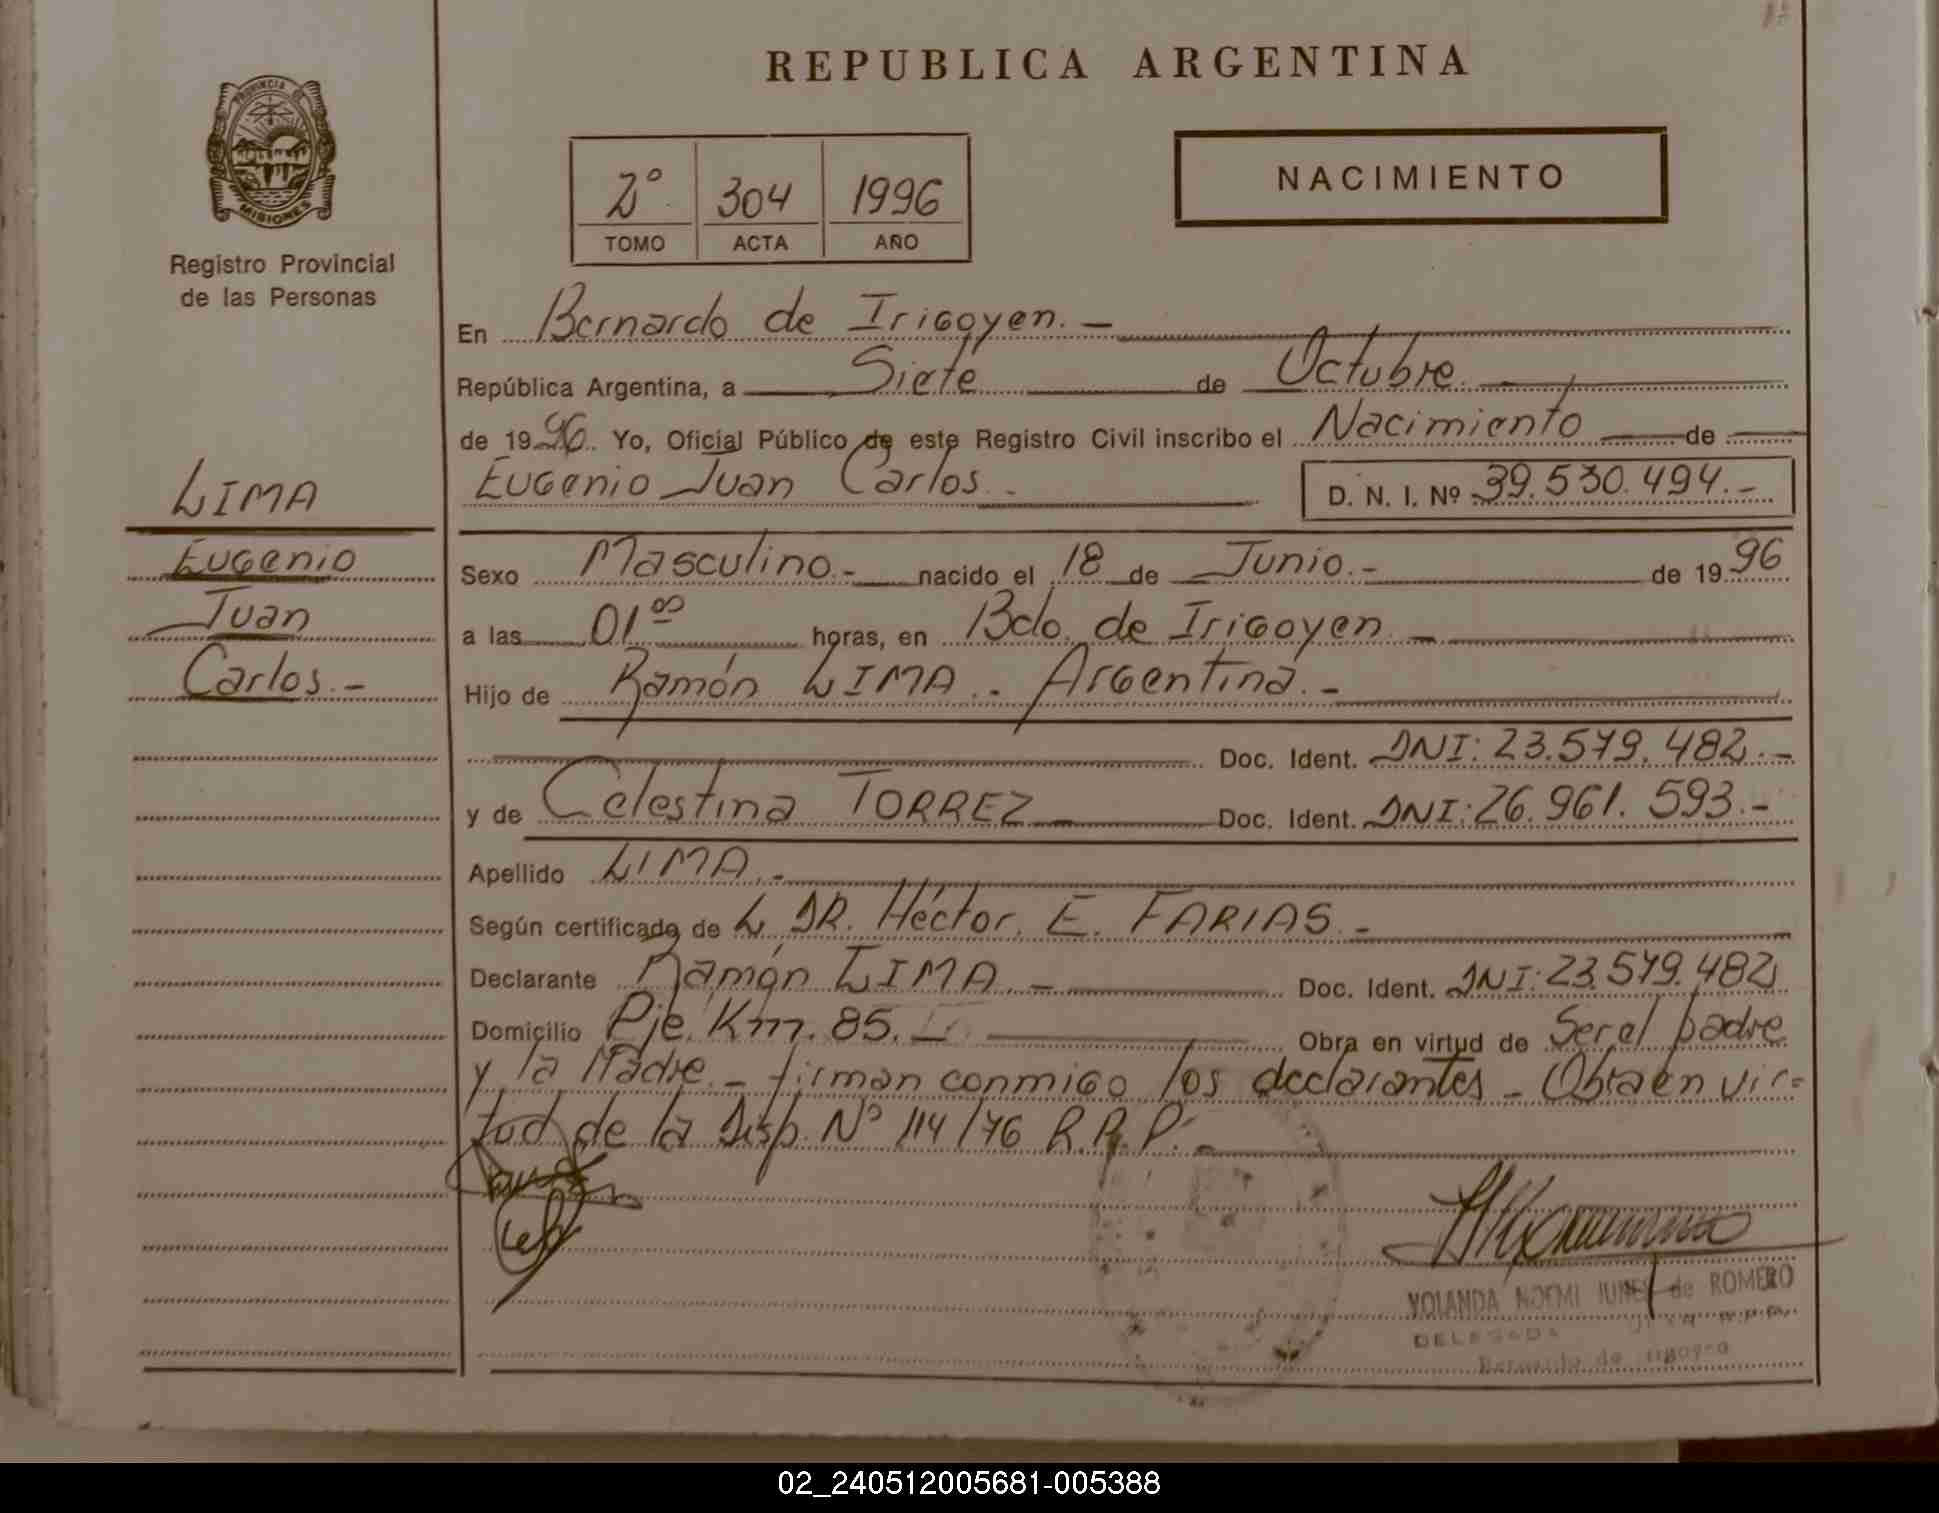 REPUBLICA ARGENTINA
PROVINCIA DE
MISIONES
Registro Provincial
de las Personas
2º 304 1996
TOMO ACTA AÑO
NACIMIENTO
En Bernardo de Irigoyen.-
República Argentina, a Siete de Octubre.
de 1996. Yo, Oficial Público de este Registro Civil inscribo el Nacimiento de
Eugenio Juan Carlos.- D. N. I. Nº 39.530.494.-
LIMA
Eugenio
Juan
Carlos.-
Sexo Masculino.- nacido el 18 de Junio.- de 1996
a las 01⁰⁰ horas, en Bdo. de Irigoyen.-
Hijo de Ramón LIMA.. Argentina.-
Doc. Ident. DNI: 23.579.482.-
y de Celestina TORREZ Doc. Ident. DNI: 26.961.593.-
Apellido LIMA.-
Según certificado de L. DR. Héctor. E. FARIAS.-
Declarante Ramón LIMA.- Doc. Ident. DNI: 23.579.482
Domicilio Pje. Km. 85. Obra en virtud de Ser el padre
y la Madre.- firman conmigo los declarantes - Obra en vir=
tud de la Disp. Nº 114/76 R.P.P.-
YOLANDA NOEMI de ROMERO
DELEGADA
Bernardo de Irigoyen
02_240512005681-005388